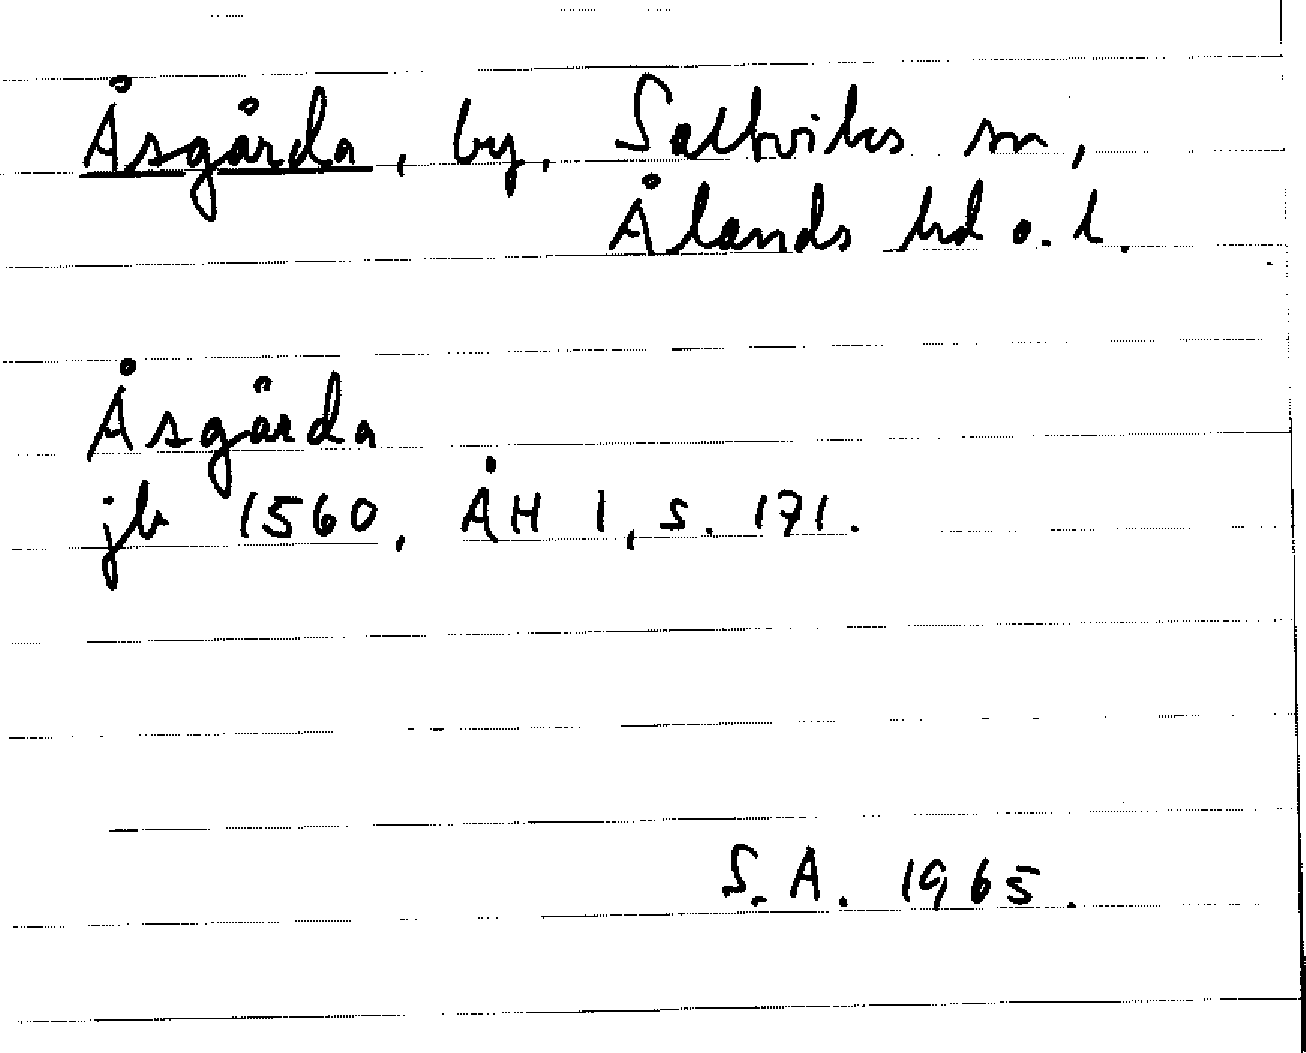 Åsgårda, by, Saltviks sn,
Ålands hd o. l.
Åsgårda
jb 1560, ÅH 1, s. 171.
S.A. 1965.